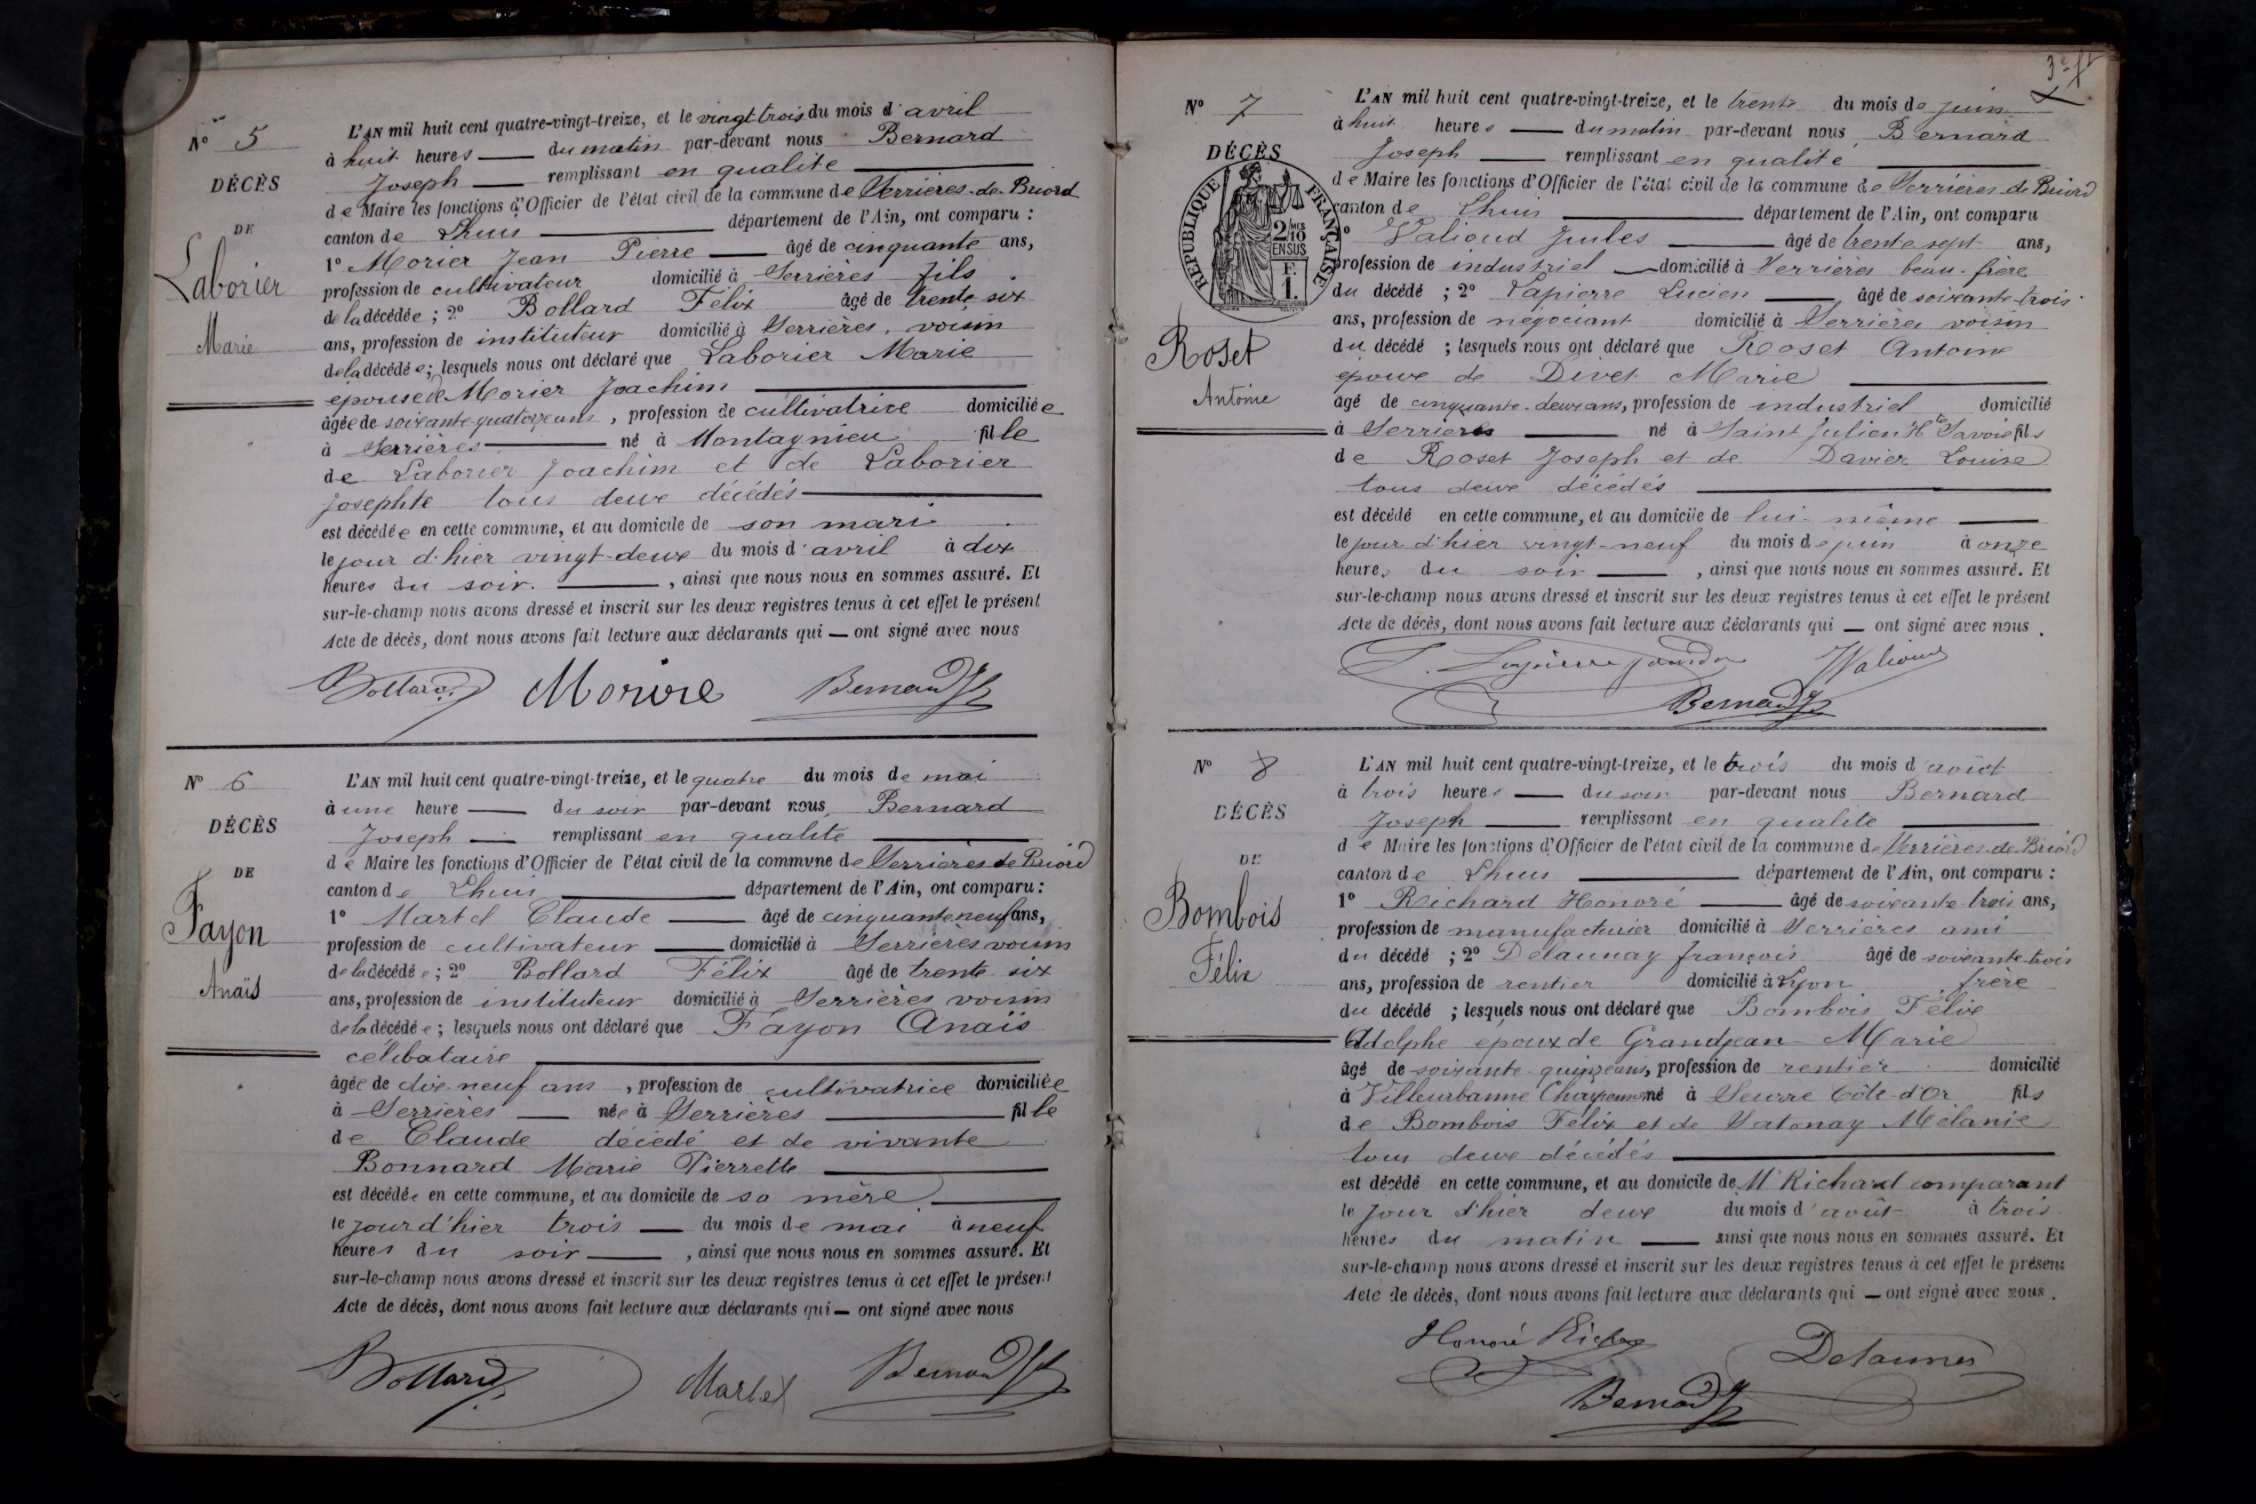 N° 5
DÉCÈS
DE
Laborier
Marie
L'AN mil huit cent quatre-vingt-treize, et le vingt-trois du mois d'avril
à huit heures du matin par-devant nous Bernard
Joseph remplissant en qualité
de Maire les fonctions d'Officier de l'état civil de la commune de Serrières-de-Briord
canton de Lhuis département de l'Ain, ont comparu :
1° Morier Jean Pierre âgé de cinquante ans,
profession de cultivateur domicilié à Serrières fils
de la décédée ; 2° Bollard Félix âgé de trente six
ans, profession de instituteur domicilié à Serrières, voisin
de la décédée ; lesquels nous ont déclaré que Laborier Marie
épouse de Morier Joachim
âgée de soixante-quatorze ans, profession de cultivatrice domiciliée
à Serrières né à Montagnieu fille
de Laborier Joachim et de Laborier
Josephte tous deux décédés
est décédée en cette commune, et au domicile de son mari
le jour d'hier vingt-deux du mois d'avril à dix
heures du soir. , ainsi que nous nous en sommes assuré. Et
sur-le-champ nous avons dressé et inscrit sur les deux registres tenus à cet effet le présent
Acte de décès, dont nous avons fait lecture aux déclarants qui — ont signé avec nous
Bollard Morire Bernard
N° 6
DÉCÈS
DE
Fayon
Anaïs
L'AN mil huit cent quatre-vingt-treize, et le quatre du mois de mai
à une heure du soir par-devant nous Bernard
Joseph remplissant en qualité
de Maire les fonctions d'Officier de l'état civil de la commune de Serrières de Briord
canton de Lhuis département de l'Ain, ont comparu :
1° Martel Claude âgé de cinquante neuf ans,
profession de cultivateur domicilié à Serrières voisin
de la décédée ; 2° Bollard Félix âgé de trente six
ans, profession de instituteur domicilié à Serrières voisin
de la décédée ; lesquels nous ont déclaré que Fayon Anaïs
célibataire
âgée de dix-neuf ans, profession de cultivatrice domiciliée
à Serrières née à Serrières fille
de Claude décédé et de vivante
Bonnard Marie Pierrette
est décédée en cette commune, et au domicile de sa mère
le jour d'hier trois du mois de mai à neuf
heures du soir , ainsi que nous nous en sommes assuré. Et
sur-le-champ nous avons dressé et inscrit sur les deux registres tenus à cet effet le présent
Acte de décès, dont nous avons fait lecture aux déclarants qui — ont signé avec nous
Bollard Martel Bernard
N° 7
DÉCÈS
RÉPUBLIQUE FRANÇAISE
2/10 MES
EN SUS
F.
1.
Roset
Antoine
L'AN mil huit cent quatre-vingt-treize, et le trente du mois de juin
à huit heures du matin par-devant nous, Bernard
Joseph remplissant en qualité
de Maire les fonctions d'Officier de l'état civil de la commune de Serrières-de-Briord
canton de Lhuis département de l'Ain, ont comparu
1° Valioud Jules âgé de trente sept ans,
profession de industriel domicilié à Serrières beau-frère
du décédé ; 2° Lapierre Lucien âgé de soixante-trois
ans, profession de négociant domicilié à Serrières voisin
du décédé ; lesquels nous ont déclaré que Roset Antoine
époux de Divet Marie
âgé de cinquante-deux ans, profession de industriel domicilié
à Serrières né à Saint Julien Hte Savoie fils
de Roset Joseph et de Davier Louise
tous deux décédés
est décédé en cette commune, et au domicile de lui-même
le jour d'hier vingt-neuf du mois de juin à onze
heures du soir , ainsi que nous nous en sommes assuré. Et
sur-le-champ nous avons dressé et inscrit sur les deux registres tenus à cet effet le présent
Acte de décès, dont nous avons fait lecture aux déclarants qui — ont signé avec nous.
Valioud
Bernard
N° 8
DÉCÈS
DE
Bombois
Félix
L'AN mil huit cent quatre-vingt-treize, et le trois du mois d'août
à trois heures du soir par-devant nous Bernard
Joseph remplissant en qualité
de Maire les fonctions d'Officier de l'état civil de la commune de Serrières-de-Briord
canton de Lhuis département de l'Ain, ont comparu :
1° Richard Honoré âgé de soixante-trois ans,
profession de manufacturier domicilié à Serrières ami
du décédé ; 2° Delaunay françois âgé de soixante-trois
ans, profession de rentier domicilié à Lyon frère
du décédé ; lesquels nous ont déclaré que Bombois Félix
Adolphe époux de Grandjean Marie
âgé de soixante-quinze ans, profession de rentier domicilié
à Villeurbanne né à Seurre Côte-d'Or fils
de Bombois Félix et de Vatonay Mélanie
tous deux décédés
est décédé en cette commune, et au domicile de Mr Richard comparant
le jour d'hier deux du mois d'août à trois
heures du matin ainsi que nous nous en sommes assuré. Et
sur-le-champ nous avons dressé et inscrit sur les deux registres tenus à cet effet le présent
Acte de décès, dont nous avons fait lecture aux déclarants qui — ont signé avec nous.
Honoré Richard Delaunay
Bernard